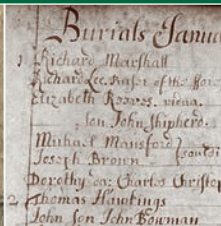 Burials Janua
1 Richard Marshall
Richard Lee. Rasor of the
Elizabeth Reaves. vidua.
son John Shipherd.
Michael Mansford
Joseph Brown
Dorothy da: Charles Christo
2 Thomas Hawtings
John Son John Bowman